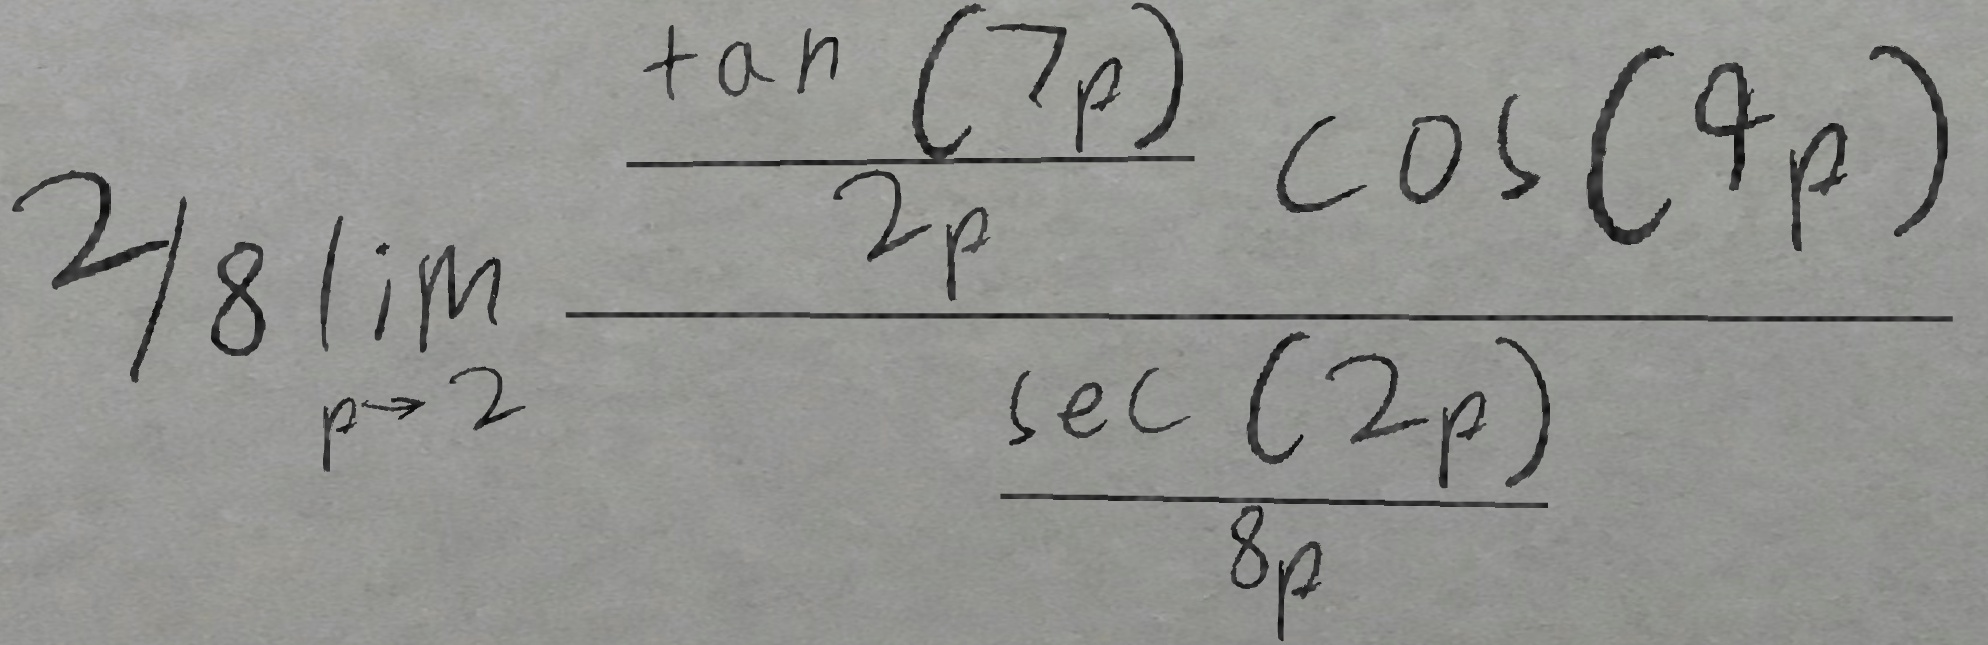 2/8 \lim_{p \to 2} \frac{\frac{\tan(7p)}{2p} \cos(4p)}{\frac{\sec(2p)}{8p}}